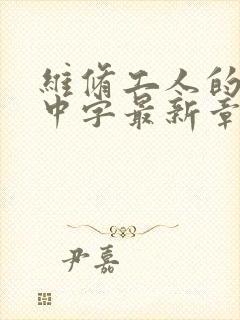 維脩工人的
中字最新章
尹嘉